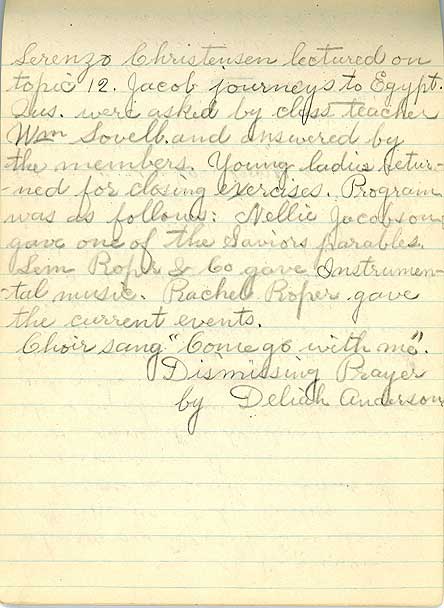 Lerenzo Christensen lectured on
topic 12. Jacob journeys to Egypt.
Qus. were asked by class teacher
Wm Lovell. and answered by
the members. Young ladies retur-
-ned for closing exercises. Program
was as follows: Nellie Jacobson,
gave one of the Saviors parables.
Lem Roper & Co gave Instrumen-
-tal music. Rachel Roper gave
the current events.
Choir sang "Come go with me".
Dismissing Prayer
by Deliah Anderson